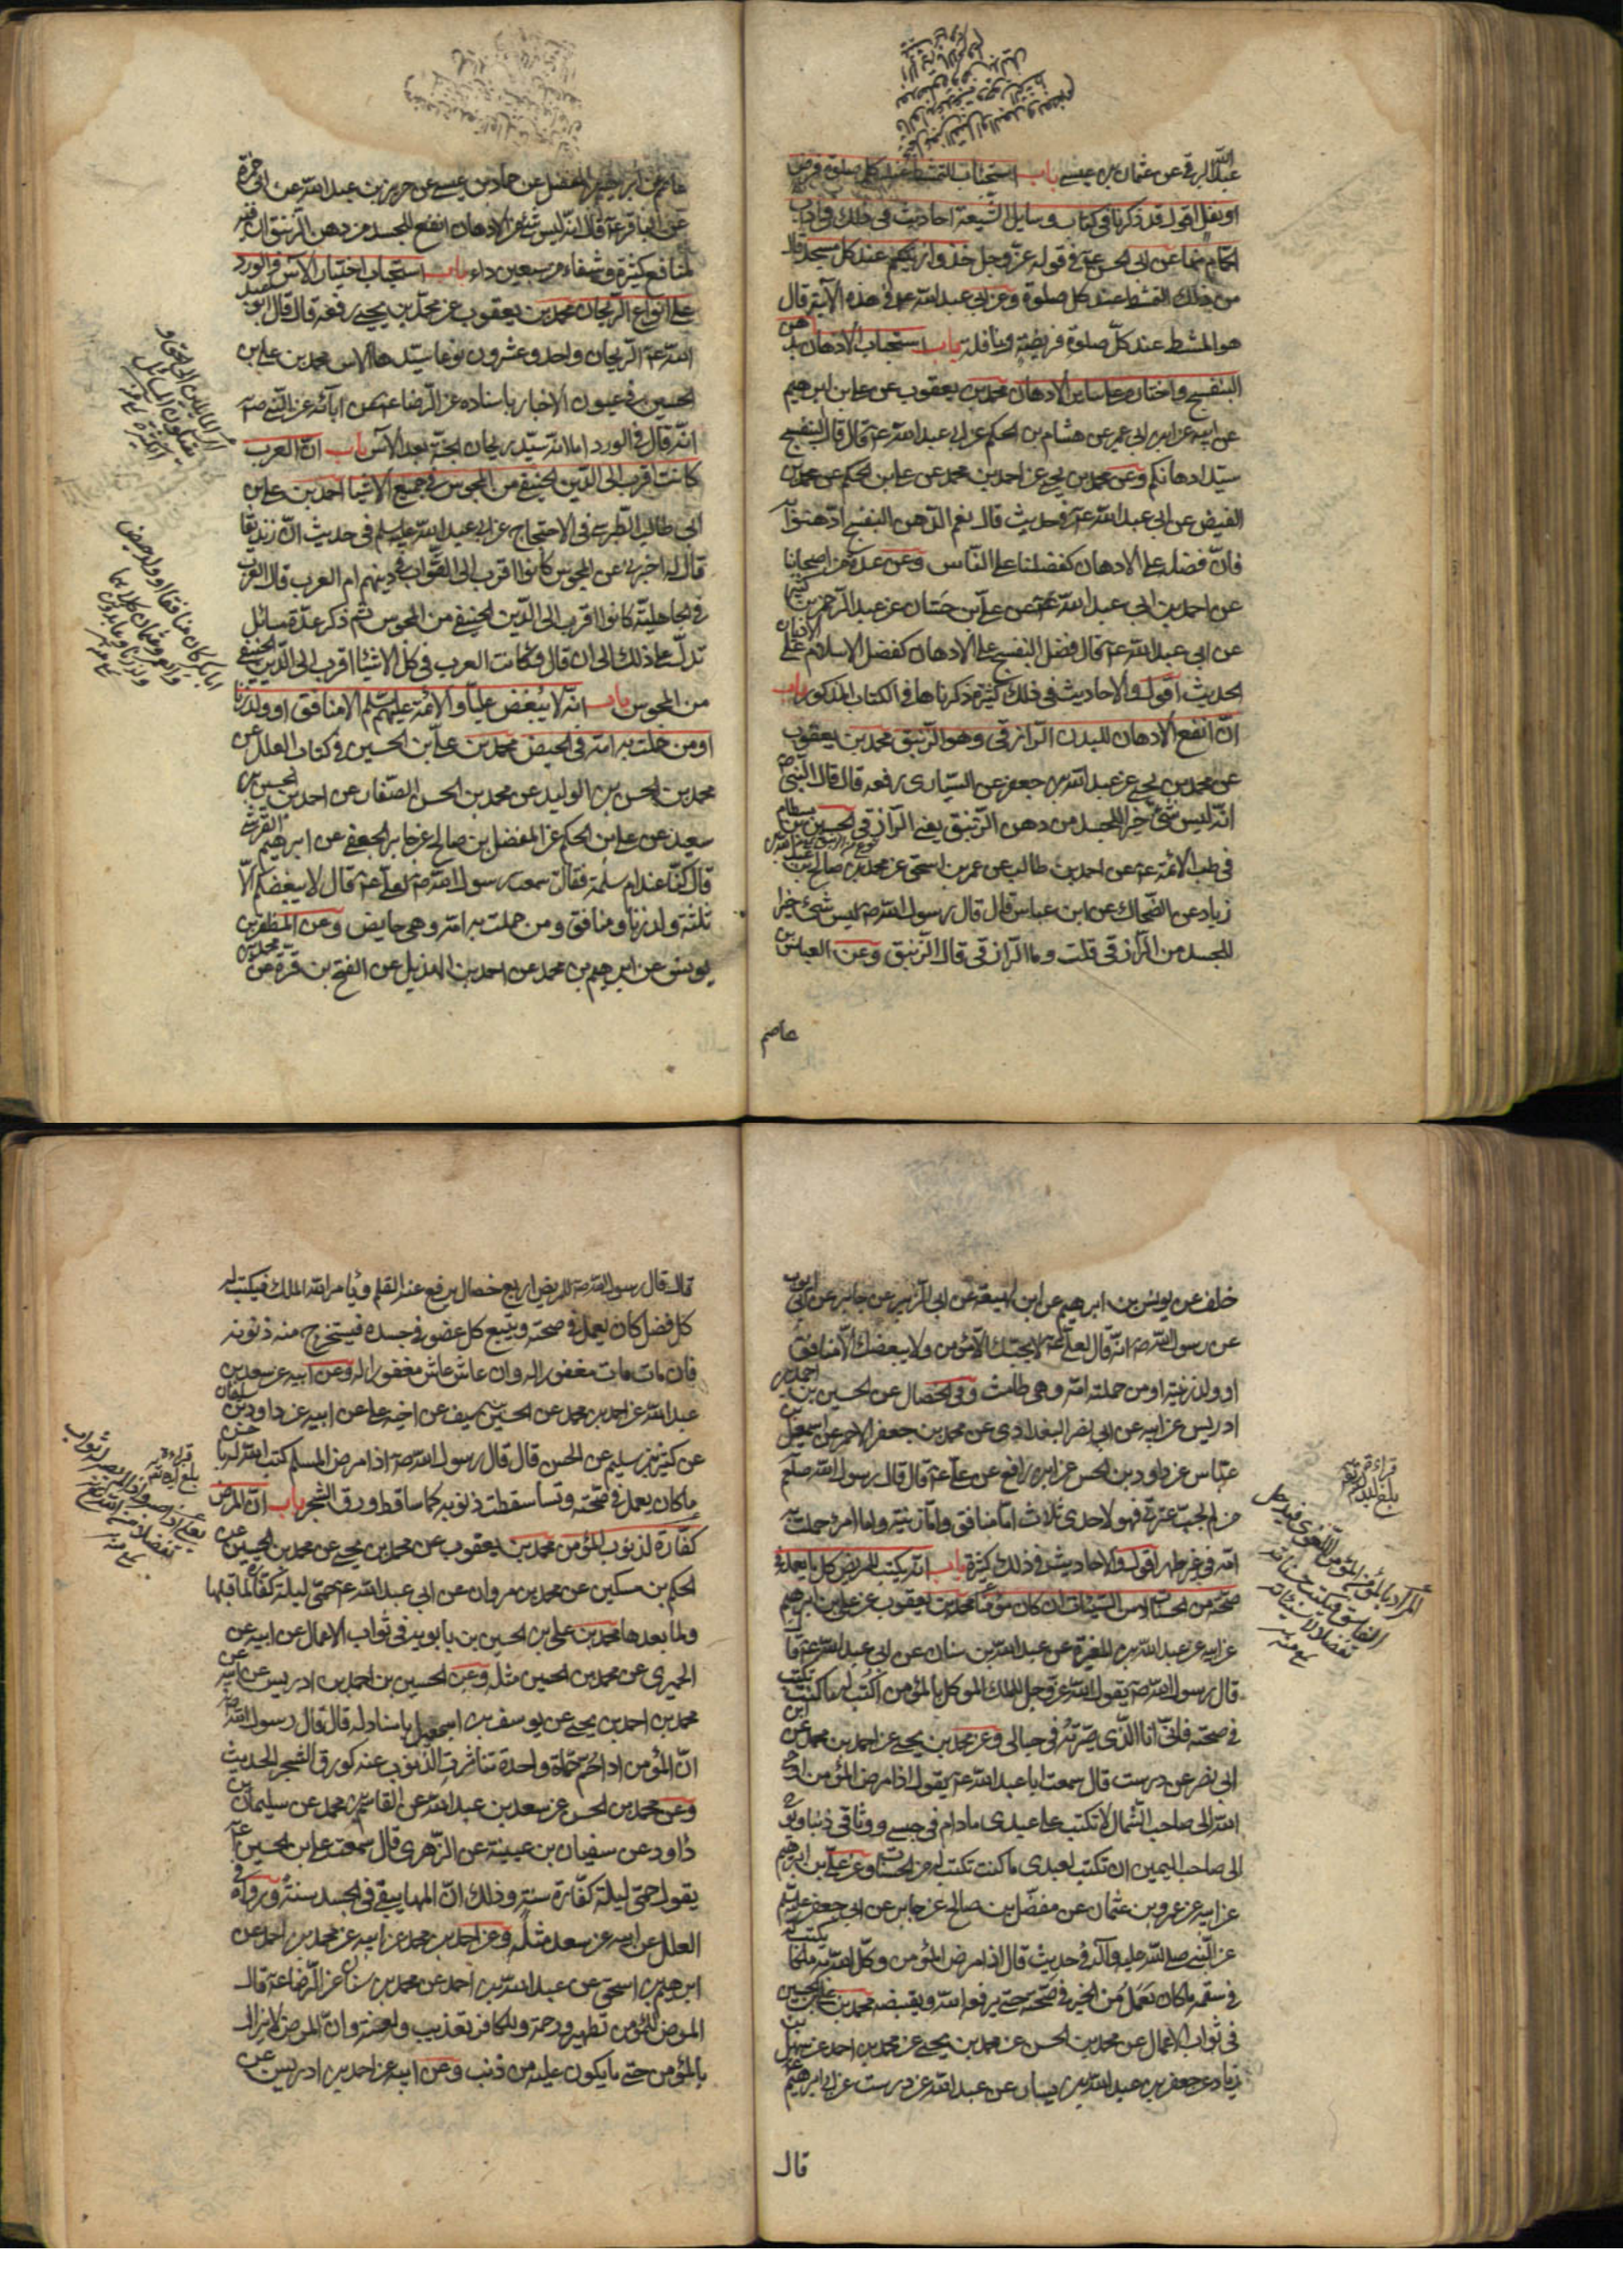 عبد الله البرقي عن عثمان بن عيسى باب استحباب التمشط عند كل صلوة فرض
او نفل اقول قد ذكرنا في كتاب وسايل الشيعة احاديث في ذلك في اداب
الحمام منها عن ابي الحسن عم في قوله عز وجل خذوا زينتكم عند كل مسجد قال
من ذلك التمشط عند كل صلوة وعن ابي عبد الله عم في هذه الآية قال
هو المشط عند كل صلوة فريضة ونافلة باب استحباب الادهان بدهن
البنفسج واختياره على ساير الادهان محمد بن يعقوب عن علي بن ابرهيم
عن ابيه عن ابن ابي عمير عن هشام بن الحكم عن ابي عبد الله عم قال قال البنفسج
سيد ادهانكم وعن محمد بن يحيى عن احمد بن محمد عن علي بن الحكم عن محمد بن
الفيض عن ابي عبد الله عم في حديث قال نعم الدهن البنفسج ادهنوا به
فان فضله على الادهان كفضلنا على الناس وعن عدة من اصحابنا
عن احمد بن ابي عبد الله عن علي بن حسان عن عبد الرحمن بن كثير
عن ابي عبد الله عم قال فضل البنفسج على الادهان كفضل الاسلام على الاديان
الحديث اقول والاحاديث في ذلك كثيرة ذكرناها في الكتاب المذكور باب
ان انفع الادهان للبدن الرازقي وهو الزنبق محمد بن يعقوب
عن محمد بن يحيى عن عبد الله بن جعفر عن السياري رفعه قال قال النبي ص
انه ليس شئ خيرا للجسد من دهن الزنبق يعني الرازقي الحسين بن بسطام
في طب الائمة عم عن احمد بن طالب عن عمر بن اسحق عن محمد بن صالح بن عبد الله بن
زياد عن الضحاك عن ابن عباس قال قال رسول الله ص ليس شئ خيرا
للجسد من الرازقي قلت وما الرازقي قال الزنبق وعن العباس بن
عاصم
عاصم عن ابرهيم بن المفضل عن حماد بن عيسى عن حريز بن عبد الله عن ابي حمزة
عن الباقر عم قال انه ليس شئ من الادهان انفع للجسد من دهن الزنبق ان فيه
لمنافع كثيرة وشفاء من سبعين داء باب استحباب اختيار الآس والورد
على انواع الريحان محمد بن يعقوب عن محمد بن يحيى رفعه قال قال ابو عبد
الله عم الريحان واحد وعشرون نوعا سيدها الاس محمد بن علي بن
الحسين في عيون الاخبار باسناده عن الرضا عم عن آبائه عن النبي ص
انه قال في الورد اما انه سيد ريحان الجنة بعد الآس باب ان العرب
كانت اقرب الى الدين الحنيفي من المجوس في جميع الاشيا احمد بن علي بن
ابي طالب الطبرسي في الاحتجاج عن ابي عبد الله عليه السلم في حديث ان زنديقا
قال له اخبرني عن المجوس كانوا اقرب الى الصواب في دينهم ام العرب قال العرب
في الجاهلية كانوا اقرب الى الدين الحنيفي من المجوس ثم ذكر عدة مسائل
تدل على ذلك الى ان قال وكانت العرب في كل الاشيا اقرب الى الدين الحنيفي
من المجوس باب انه لا يبغض عليا والائمة عليهم السلم الا منافق او ولد زنا
او من حملت به امه في الحيض محمد بن علي بن الحسين في كتاب العلل عن
محمد بن الحسن بن الوليد عن محمد بن الحسن الصفار عن احمد بن الحسين بن
سعيد عن علي بن الحكم عن المفضل بن صالح عن جابر الجعفي عن ابرهيم القرشي
قال كنا عند ام سلمة فقالت سمعت رسول الله ص يقول لعلي عم قال لا يبغضكم الا
ثلثة ولد زنا ومنافق ومن حملت به امه وهي حايض وعن المظفر بن
يونس عن ابرهيم بن محمد عن احمد بن الهذيل عن الفتح بن قرة عن محمد بن
خلف عن يونس بن ابرهيم عن ابن لهيعة عن ابي الزبير عن جابر عن ابي ايوب
عن رسول الله ص انه قال لعلي عم لا يحبك الا مؤمن ولا يبغضك الا منافق
او ولد زنية او من حملته امه وهي طامث وفي الخصال عن الحسين بن احمد بن
ادريس عن ابيه عن ابي نصر البغدادي عن محمد بن جعفر الاحمر عن اسمعيل بن
عباس عن داود بن الحسن عن ابي رافع عن علي عم قال قال رسول الله صلعم
من لم يحب عترتي فهو لاحدى ثلاث اما منافق واما زنية واما امرء حملت به
امه في غير طهر اقول والاحاديث في ذلك كثيرة باب انه يكتب للمريض كل ما يعمله
صحته من الحسنات وليس السيئات ان كان مؤمنا محمد بن يعقوب عن علي بن ابرهيم
عن ابيه عن عبد الله بن المغيرة عن عبد الله بن سنان عن ابي عبد الله عم قال
قال رسول الله ص يقول الله عز وجل للملك الموكل بالمؤمن اكتب له ما كنت تكتب
في صحته فاني انا الذي صيرته في حبالي وعن محمد بن يحيى عن احمد بن محمد عن ابن
ابي نصر عن درست قال سمعت ابا عبد الله عم يقول اذا مرض المؤمن اوحى
الله الى صاحب الشمال لا تكتب على عبدي ما دام في حبسي ووثاقي ذنبا ويوحي
الى صاحب اليمين ان تكتب لعبدي ما كنت تكتب له من الحسنات وعن علي بن ابرهيم
عن ابيه عن عمرو بن عثمان عن مفضل بن صالح عن جابر عن ابي جعفر عليه السلم
عن النبي صلى الله عليه وآله في حديث قال اذا مرض المؤمن وكل الله به ملكا يكتب له
في سقمه ما كان يعمل من الخير في صحته حتى يرفعه الله ويقبضه محمد بن علي بن الحسين
في ثواب الاعمال عن محمد بن الحسن عن محمد بن يحيى عن محمد بن احمد عن سهل بن
زياد عن جعفر بن عبد الله بن بسار عن عبد الله عن درست عن ابي ابرهيم عم
قال
قال قال رسول الله ص للمريض اربع خصال يرفع عنه القلم ويأمر الله الملك فيكتب له
كل فضل كان يعمل في صحته ويتبع كل عضو في جسده فيستخرج منه ذنوبه
فان مات مات مغفورا له وان عاش عاش مغفورا له وعن ابيه عن سعد بن
عبد الله عن احمد بن محمد عن الحسين بن سيف عن اخيه علي عن ابيه عن داود بن سليمان
عن كثير بن سليم عن الحسن قال قال رسول الله ص اذا مرض المسلم كتب الله له باحسن
ما كان يعمل في صحته وتساقطت ذنوبه كما تساقط ورق الشجر باب ان المرض
كفارة لذنوب المؤمن محمد بن يعقوب عن محمد بن يحيى عن محمد بن الحسين عن
الحكم بن مسكين عن محمد بن مروان عن ابي عبد الله عم حمى ليلة كفارة لما قبلها
ولما بعدها محمد بن علي بن الحسين بن بابويه في ثواب الاعمال عن ابيه عن
الحميري عن محمد بن الحسين مثله وعن الحسين بن احمد بن ادريس عن ابيه عن
محمد بن احمد بن يحيى عن يوسف بن اسمعيل باسناد له قال قال رسول الله ص
ان المؤمن اذا حم حماة واحدة تناثرت الذنوب عنه كورق الشجر الحديث
وعن محمد بن الحسن عن سعد بن عبد الله عن القاسم بن محمد عن سليمان بن
داود عن سفيان بن عيينة عن الزهري قال سمعت علي بن الحسين عم
يقول حمى ليلة كفارة سنة وذلك ان المها يبقى في الجسد سنة ورواه في
العلل عن ابيه عن سعد مثله وعن احمد بن محمد عن ابيه عن محمد بن احمد عن
ابرهيم بن اسحق عن عبد الله بن احمد عن محمد بن سنان عن الرضا عم قال
المرض للمؤمن تطهير ورحمة وللكافر تعذيب ولعنة وان المرض لا يزال
بالمؤمن حتى ما يكون عليه من ذنب وعن ابيه عن احمد بن ادريس عن